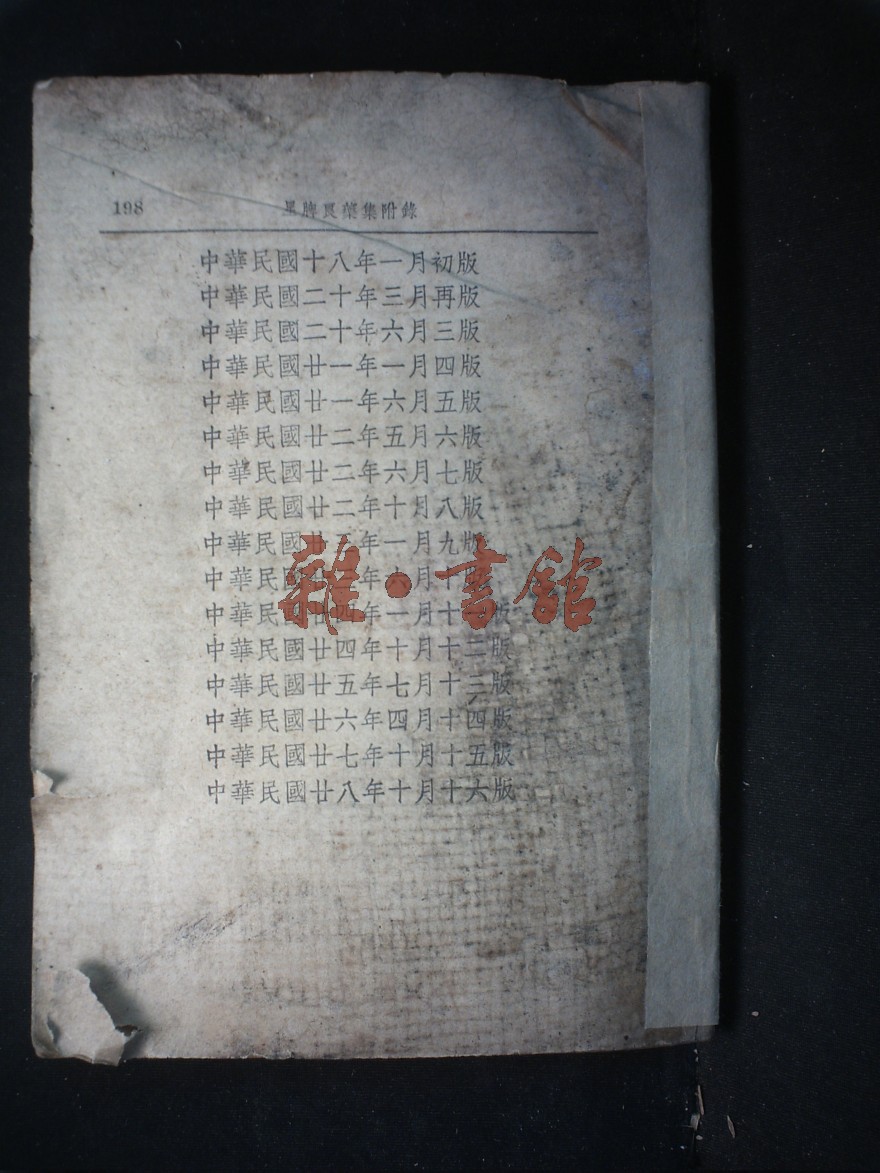 198 星牌良藥集附錄
中華民國十八年一月初版
中華民國二十年三月再版
中華民國二十年六月三版
中華民國廿一年一月四版
中華民國廿一年六月五版
中華民國廿二年五月六版
中華民國廿二年六月七版
中華民國廿二年十月八版
中華民國廿三年一月九版
中華民國廿三年六月十版
中華民國廿四年一月十一版
中華民國廿四年十月十二版
中華民國廿五年七月十三版
中華民國廿六年四月十四版
中華民國廿七年十月十五版
中華民國廿八年十月十六版
雜·書館